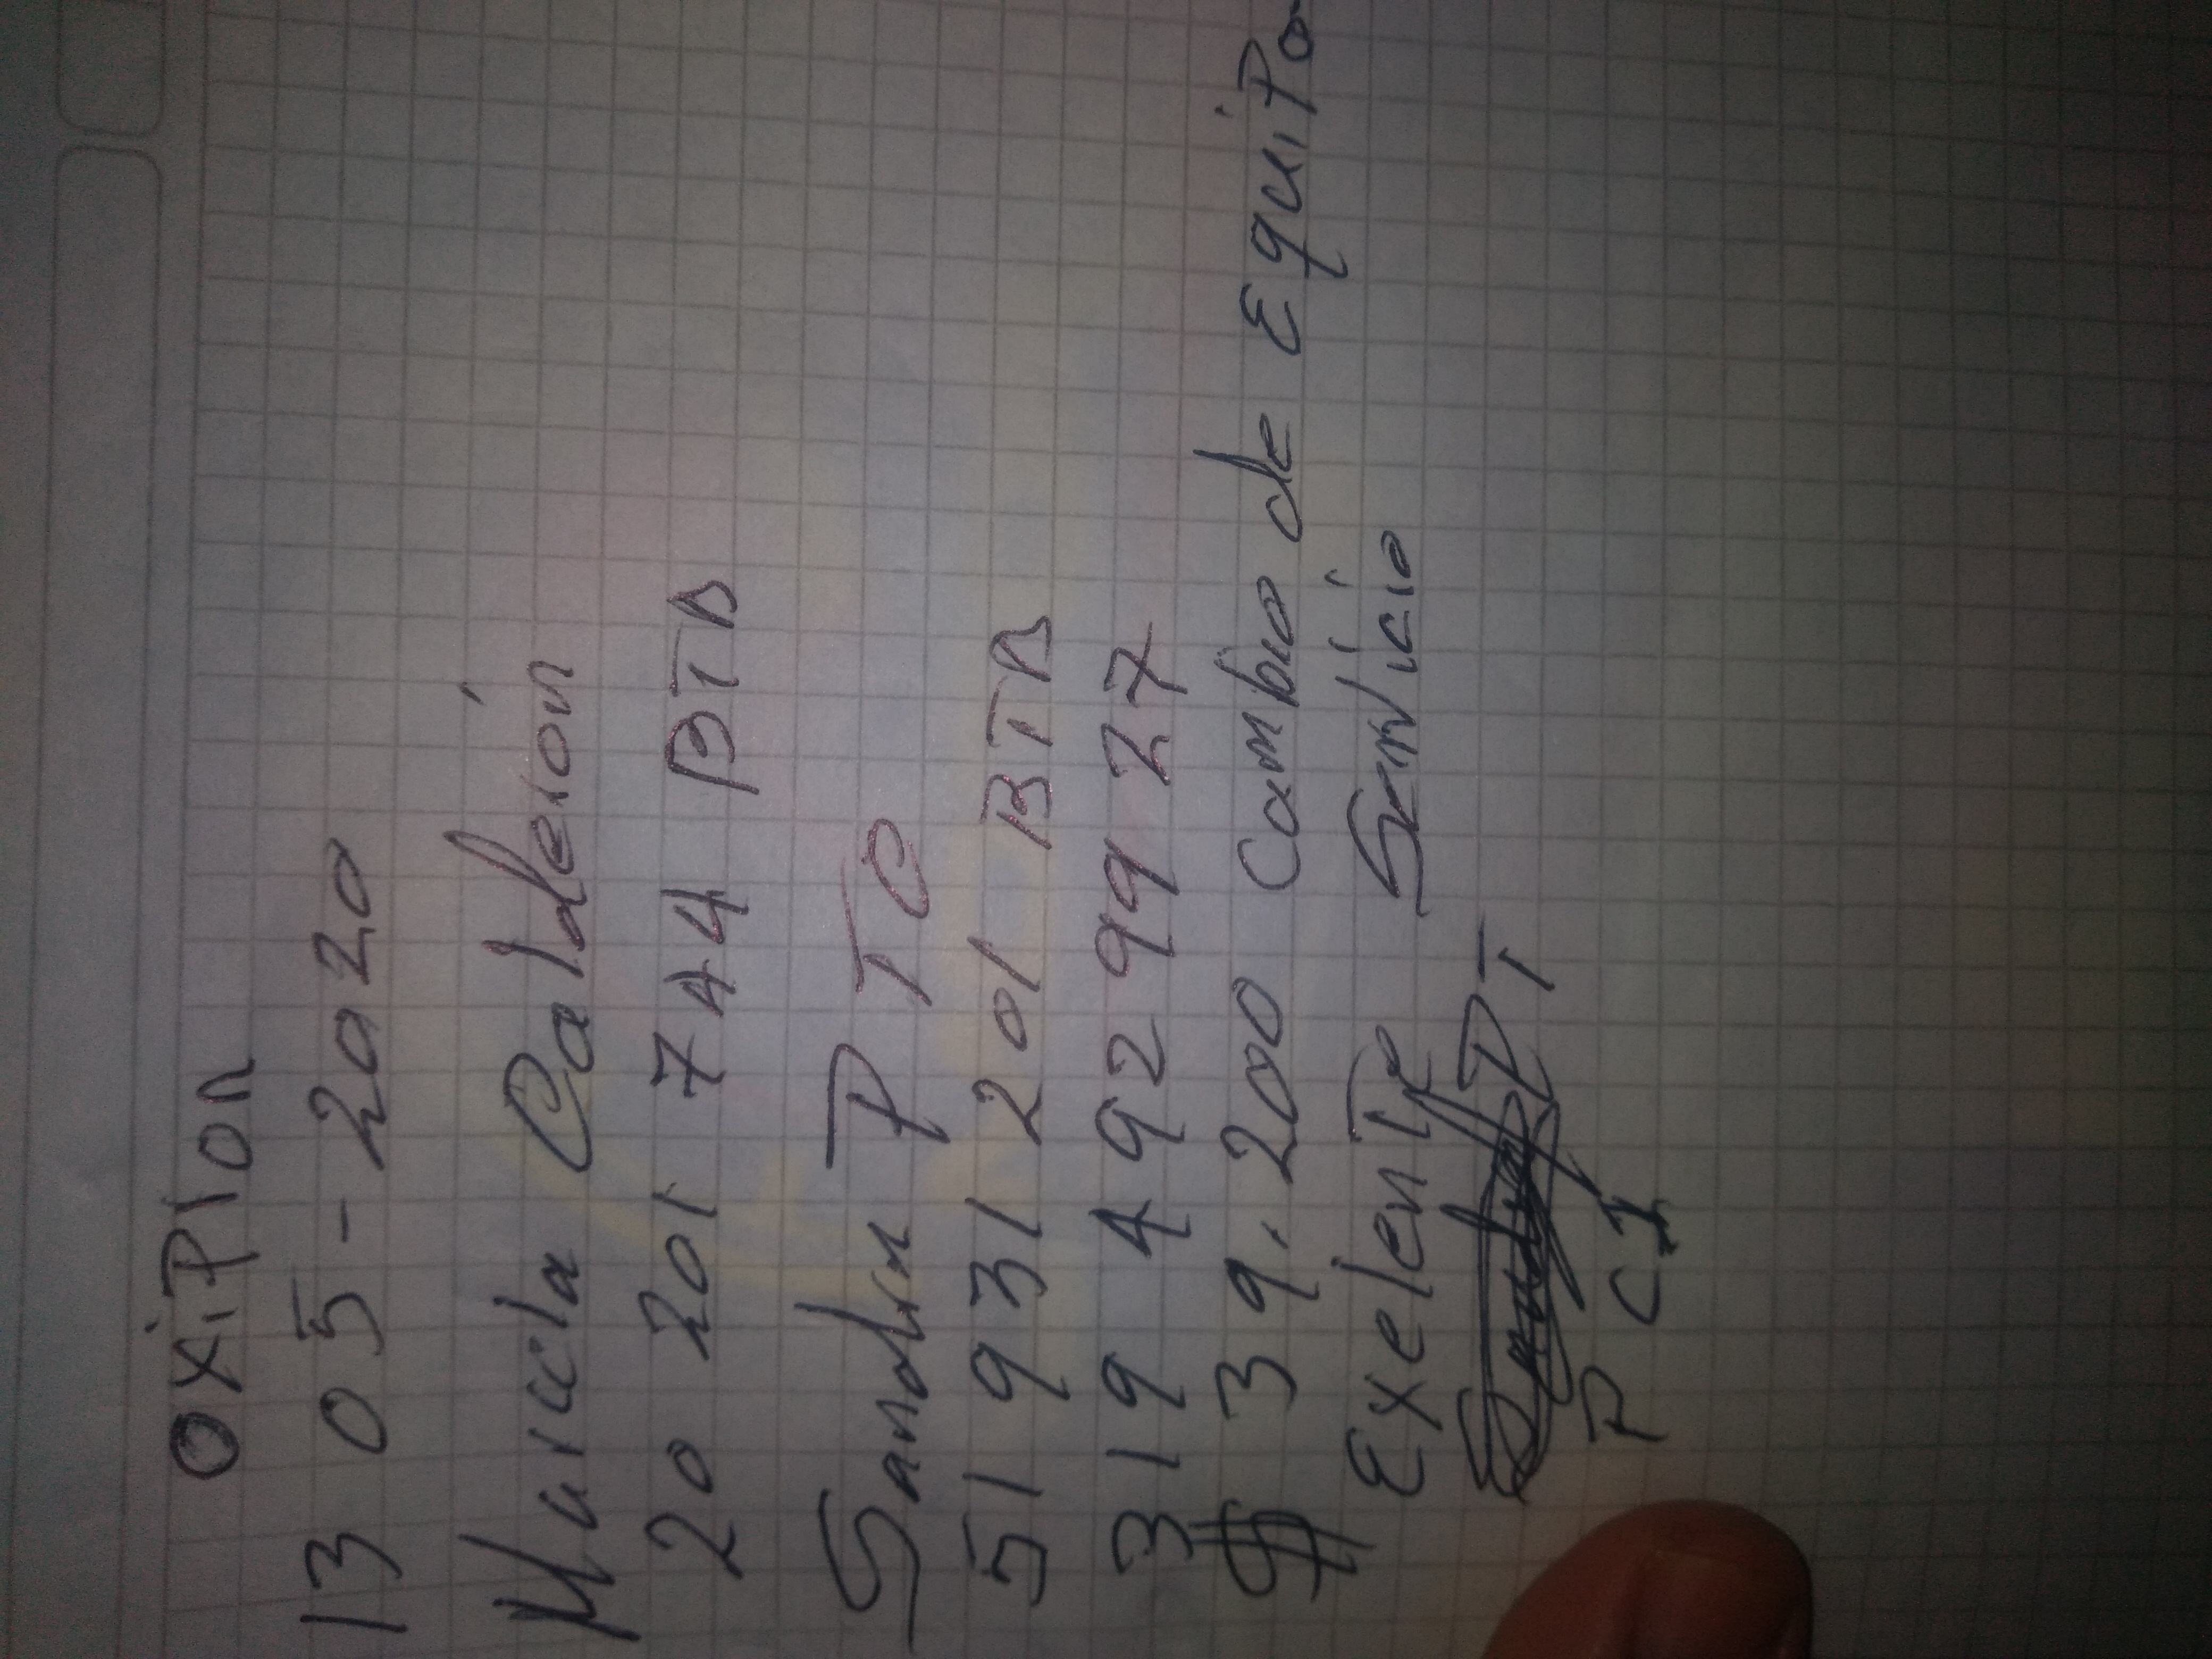 OXiPion
13 05-2020
Muricla Calderón
20 201 744 BTA
Sandra PTO
51 931 201 BTA
319 492 99 27
$ 39.200 Cambio de Equipo
ExelenTe Servicio
DT
P C1